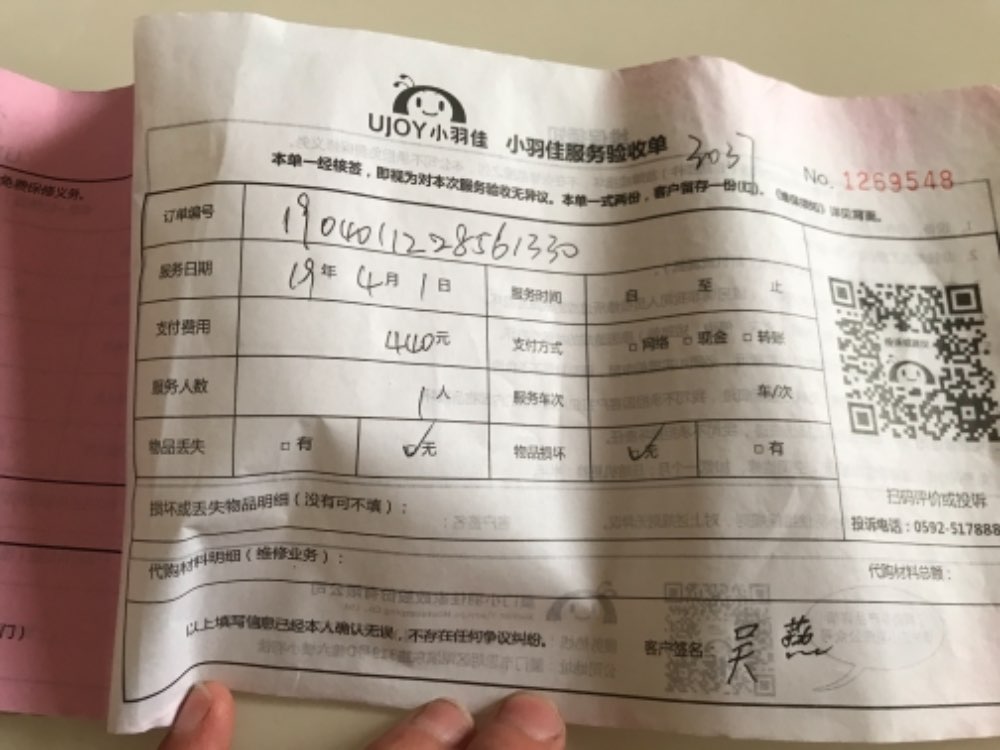 UJOY小羽佳 小羽佳服务验收单 3037
No. 1269548
本单一经核签，即视为对本次服务验收无异议。本单一式两份，客户留存一份(红)。《维保须知》详见背面。
订单编号 1904011228561330
服务日期 19年4月1日 服务时间 自 至 止
支付费用 440元 支付方式 □网络 □现金 □转账
服务人数 1人 服务车次 车/次
物品丢失 □有 ☑无 物品损坏 ☑无 □有
损坏或丢失物品明细（没有可不填）：
扫码评价或投诉
投诉电话：0592-517888
代购材料明细（维修业务）： 代购材料总额：
以上填写信息已经本人确认无误，不存在任何争议纠纷。 客户签名：吴燕
免费保修义务。
门）